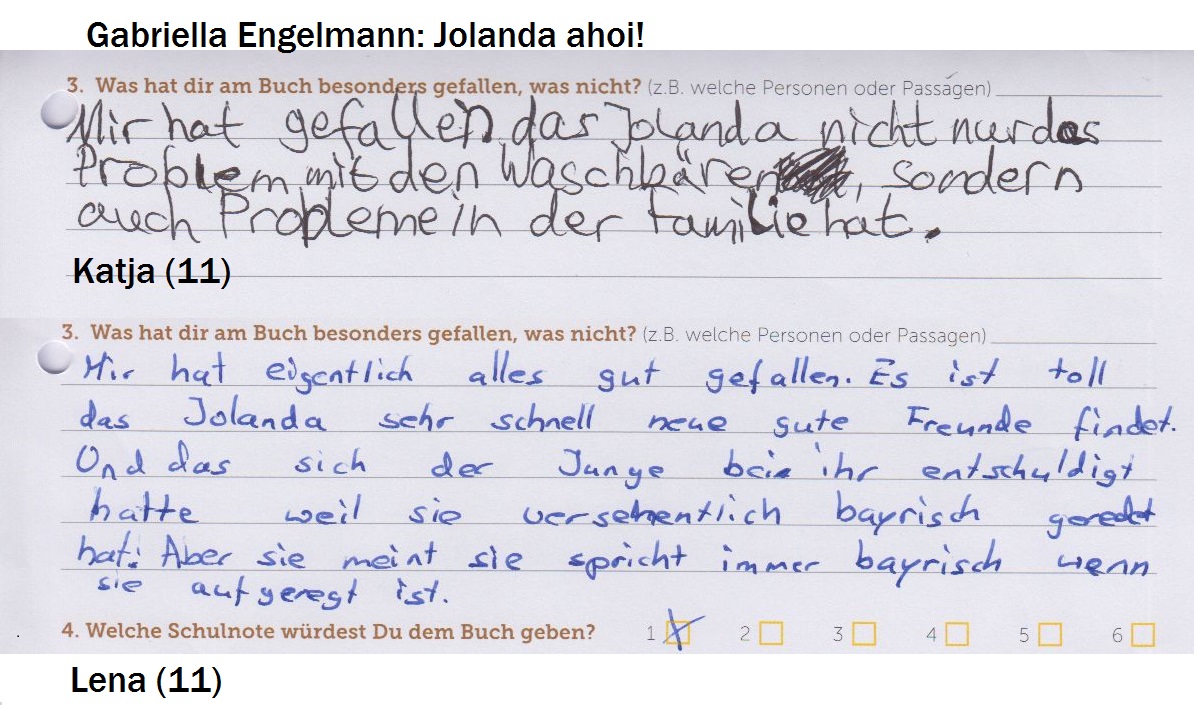 Gabriella Engelmann: Jolanda ahoi!
3. Was hat dir am Buch besonders gefallen, was nicht? (z.B. welche Personen oder Passagen)
Mir hat gefallen, das Jolanda nicht nur das
Problem mit den Waschbären, sondern
auch Probleme in der Familie hat.
Katja (11)
3. Was hat dir am Buch besonders gefallen, was nicht? (z.B. welche Personen oder Passagen)
Mir hat eigentlich alles gut gefallen. Es ist toll
das Jolanda sehr schnell neue gute Freunde findet.
Und das sich der Junge bei ihr entschuldigt
hatte weil sie versehentlich bayrisch geredet
hat. Aber sie meint sie spricht immer bayrisch wenn
sie aufgeregt ist.
4. Welche Schulnote würdest Du dem Buch geben? 1 2 3 4 5 6
Lena (11)